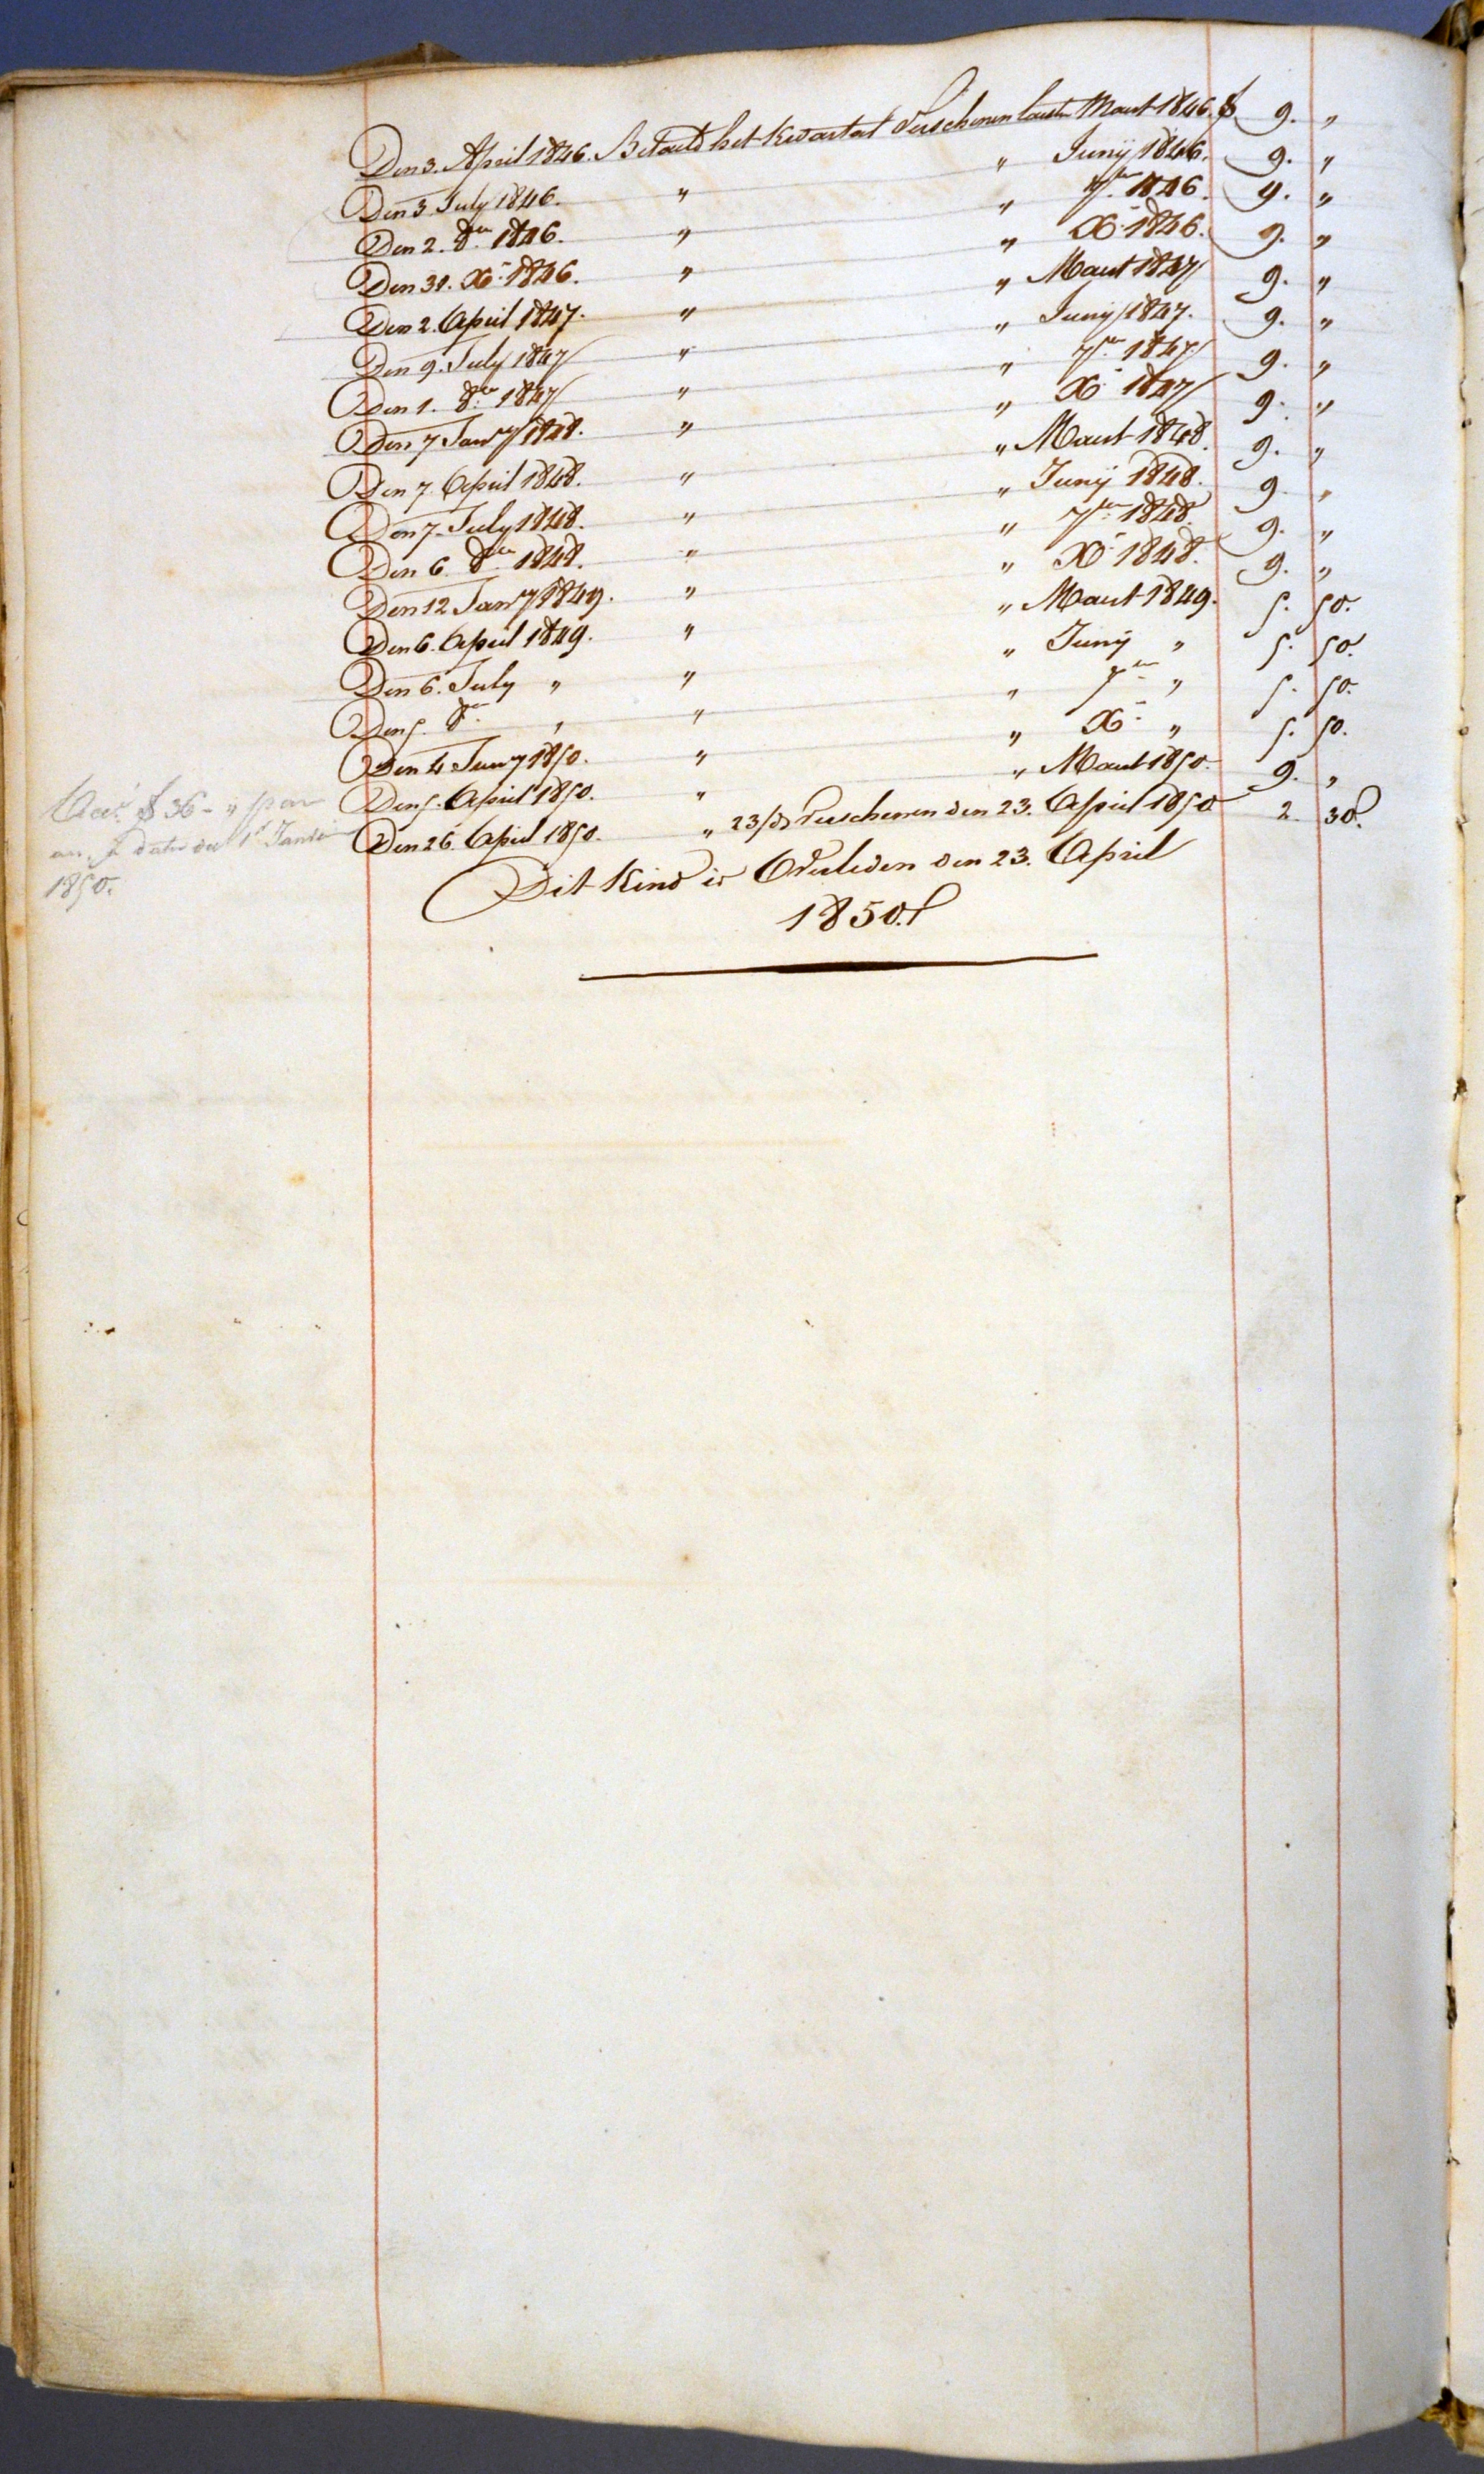 Den 3. April 1846. Betaald het Kwartaal Verschenen laatsten Maart 1846. f 9. "
Den 3 July 1846. " " Junij 1846. 9. "
Den 2. 8ber 1846. " " 7ber 1846. 9. "
Den 31. Xb 1846. " " Xb 1846. 9. "
Den 2. April 1847. " " Maart 1847 9. "
Den 9. July 1847 " " Junij 1847. 9. "
Den 1. 8ber 1847 " " 7ber 1847 9. "
Den 7 Jany 1848. " " Xb 1847 9. "
Den 7 April 1848. " " Maart 1848. 9. "
Den 7 July 1848. " " Junij 1848. 9. "
Den 6. 8ber 1848. " " 7ber 1848. 9. "
Den 12 Jany 1849. " " Xb 1848. 9. "
Den 6. April 1849. " " Maart 1849. 5. 50.
Den 6. July " " " Junij " 5. 50.
Den 5. 8br " " " 7ber " 5. 50.
Den 4 Jany 1850. " " Xb " 5. 50.
Den 5. April 1850. " " Maart 1850. 9. "
Den 26. April 1850. " 23/ds Verschenen den 23. April 1850 2. 30.
Dit Kind is Overleden den 23. April
1850.
f 36 - "
1850.